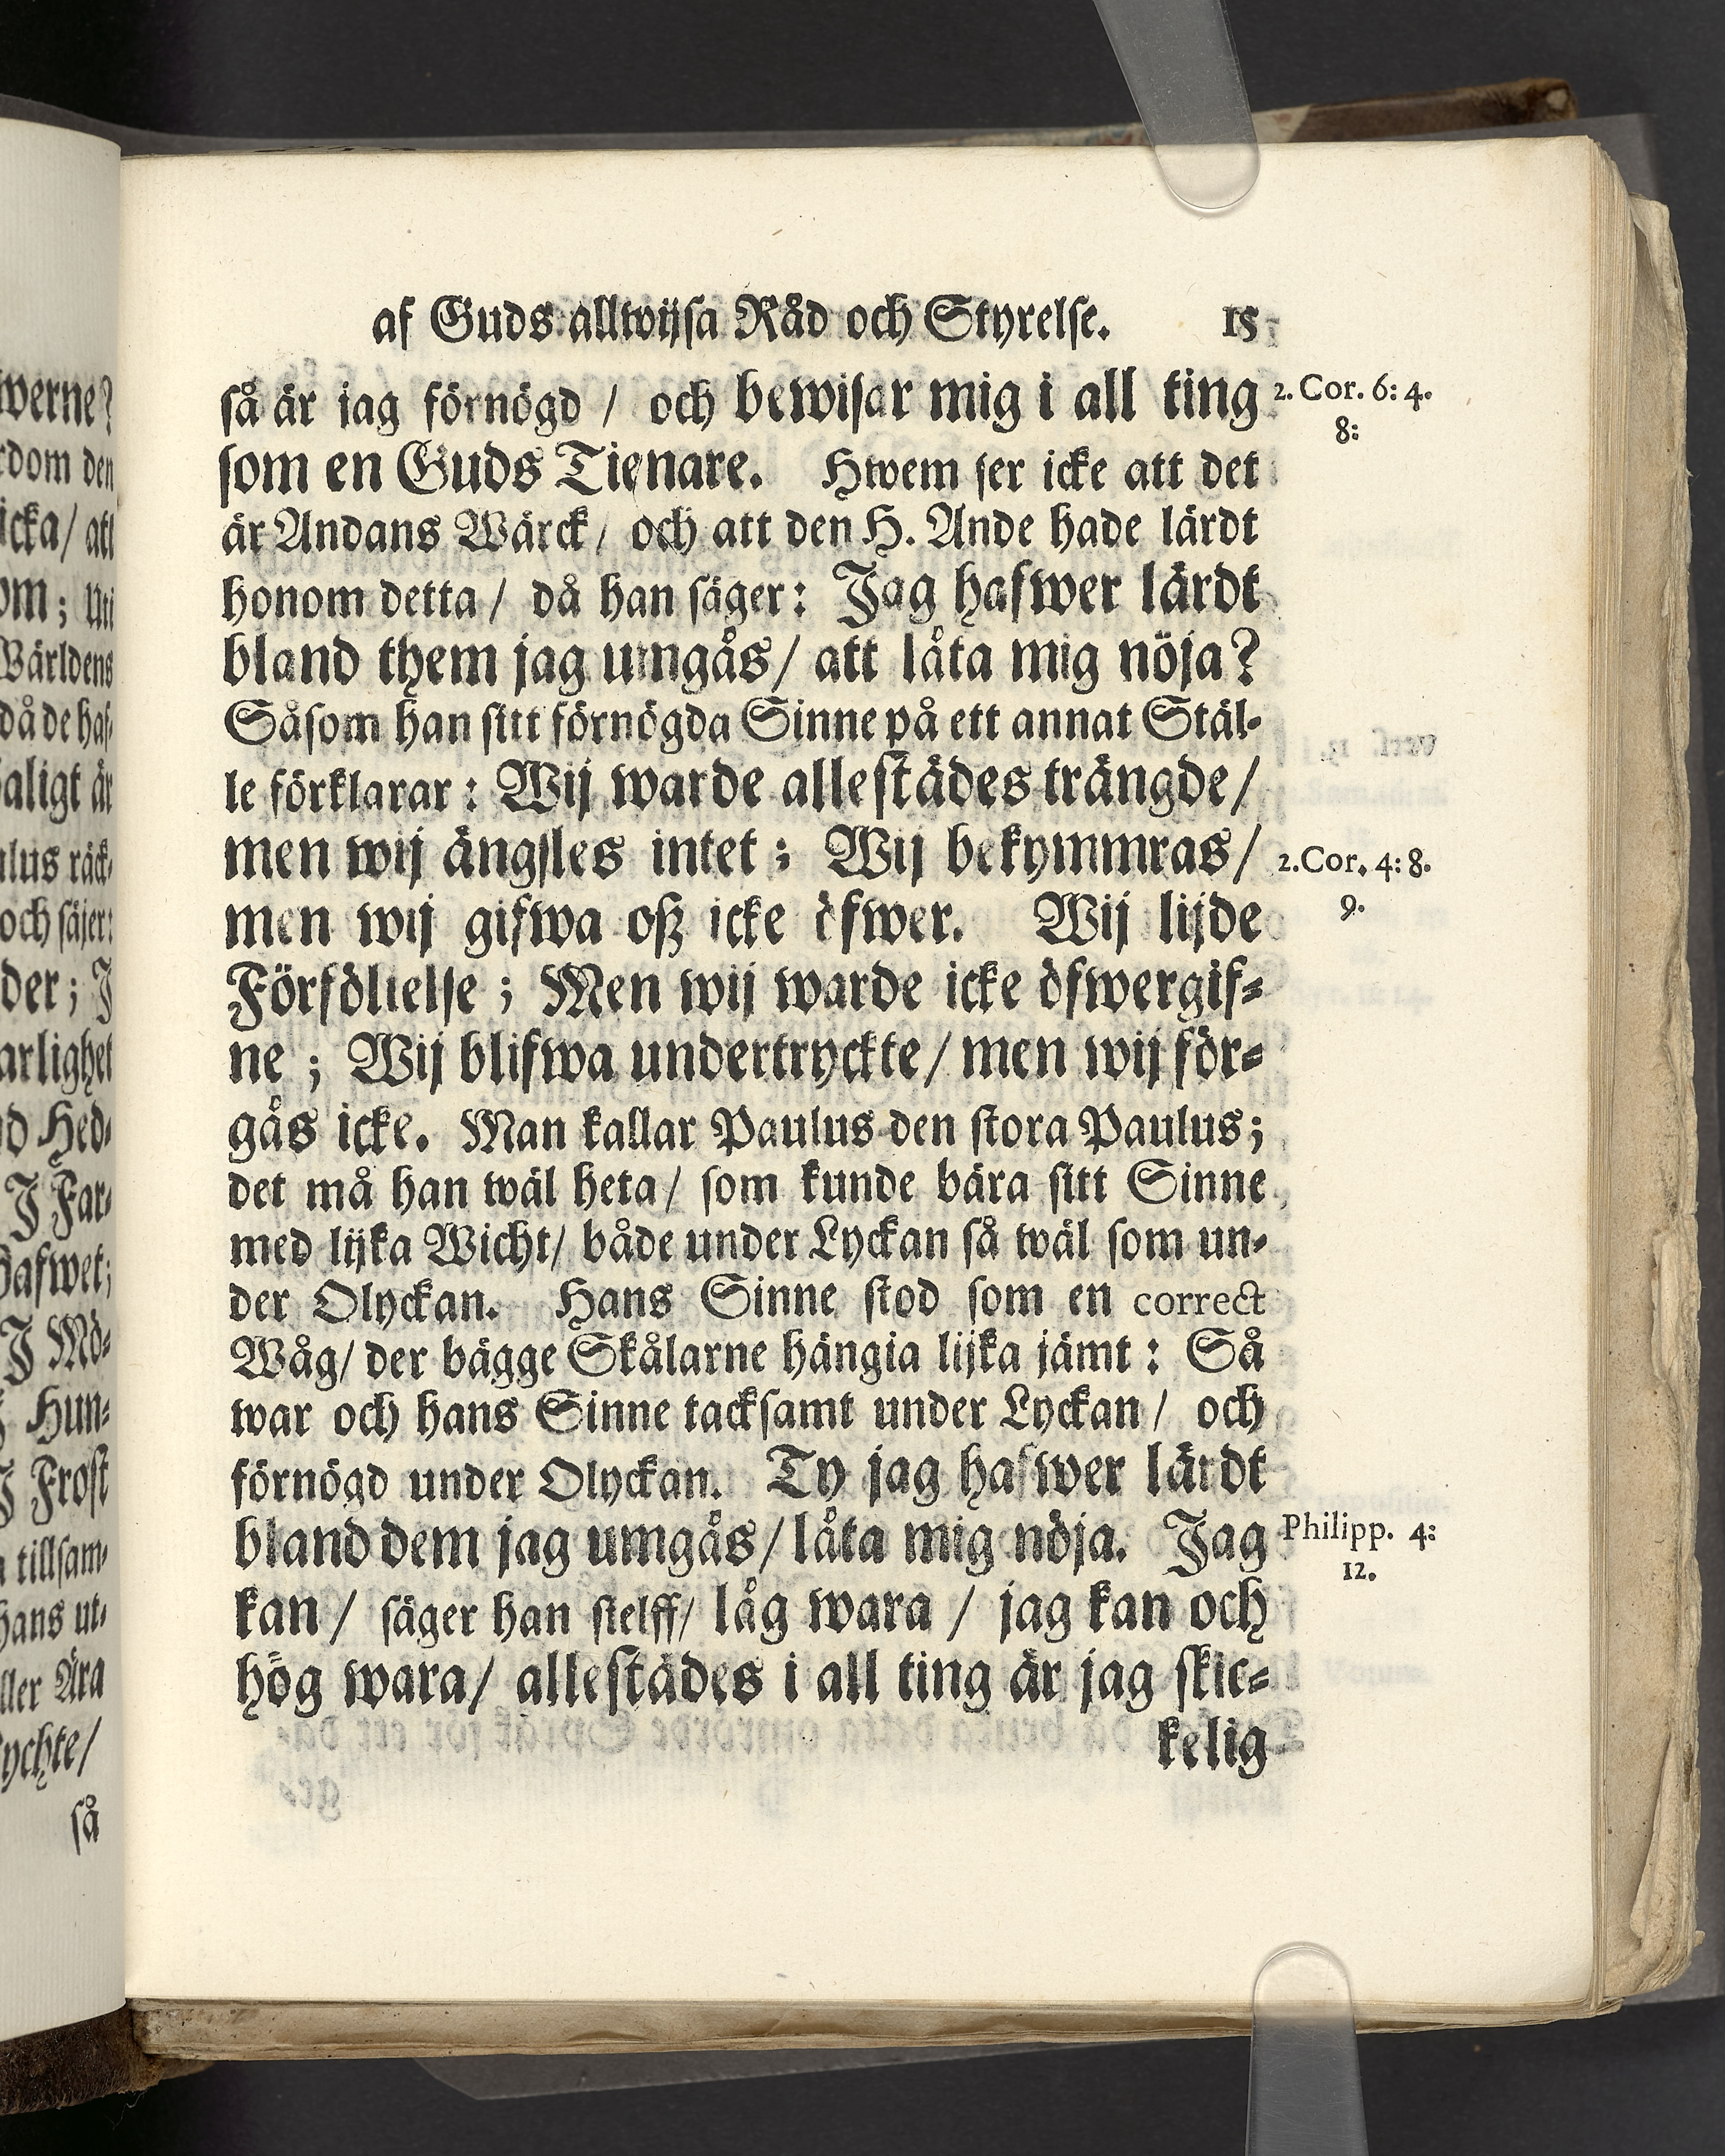 af Guds allwijsa Råd och Styrelse. 15
så är jag förnögd / och bewisar mig i all ting
2. Cor. 6: 4.
8:
som en Guds Tienare. Hwem ser icke att det
är Andans Wärck / och att den H. Ande hade lärdt
honom detta / då han säger: Jag hafwer lärdt
bland them jag umgås / att låta mig nöja?
Såsom han sitt förnögda Sinne på ett annat Stäl-
le förklarar: Wij warde allestädes trängde /
men wij ängsles intet; Wij bekymmras /
2. Cor. 4: 8.
9.
men wij gifwa oß icke öfwer. Wij lijde
Förföllielse; Men wij warde icke öfwergif-
ne; Wij blifwa undertryckte / men wij för-
gås icke. Man kallar Paulus den stora Paulus;
det må han wäl heta / som kunde bära sitt Sinne
med lijka Wicht / både under Lyckan så wäl som un-
der Olyckan. Hans Sinne stod som en correct
Wåg / der bägge Skålarne hängia lijka jämt: Så
war och hans Sinne tacksamt under Lyckan / och
förnögd under Olyckan. Ty jag hafwer lärdt
bland dem jag umgås / låta mig nöja. Jag
Philipp. 4:
12.
kan / säger han sielff / låg wara / jag kan och
hög wara / allestädes i all ting är jag skic-
kelig
werne?
rdom den
icka / att
om; Uti
Wärldens
då de haf-
aligt är
ulus räck-
och säjer:
der; J
arlighet
d Hed-
J Far-
Hafwet;
J Mö-
Hun-
J Frost
tillsam-
hans ut-
ller Ära
ychte /
så